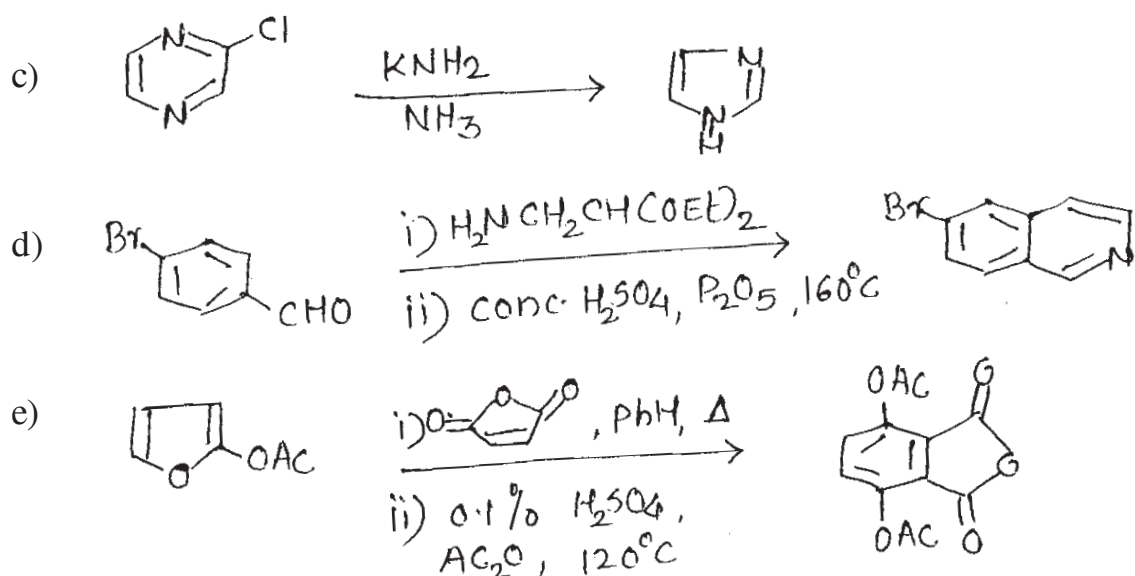 c)
N
Cl
N
KNH2
NH3
N
N
H
d)
Br
CHO
i) H2N CH2CH(OEt)2
ii) conc. H2SO4, P2O5, 160°C
Br
N
e)
O
OAC
i) O= O O , PhH, Δ
ii) 0.1% H2SO4,
AC2O, 120°C
OAC
O
O
O
OAC